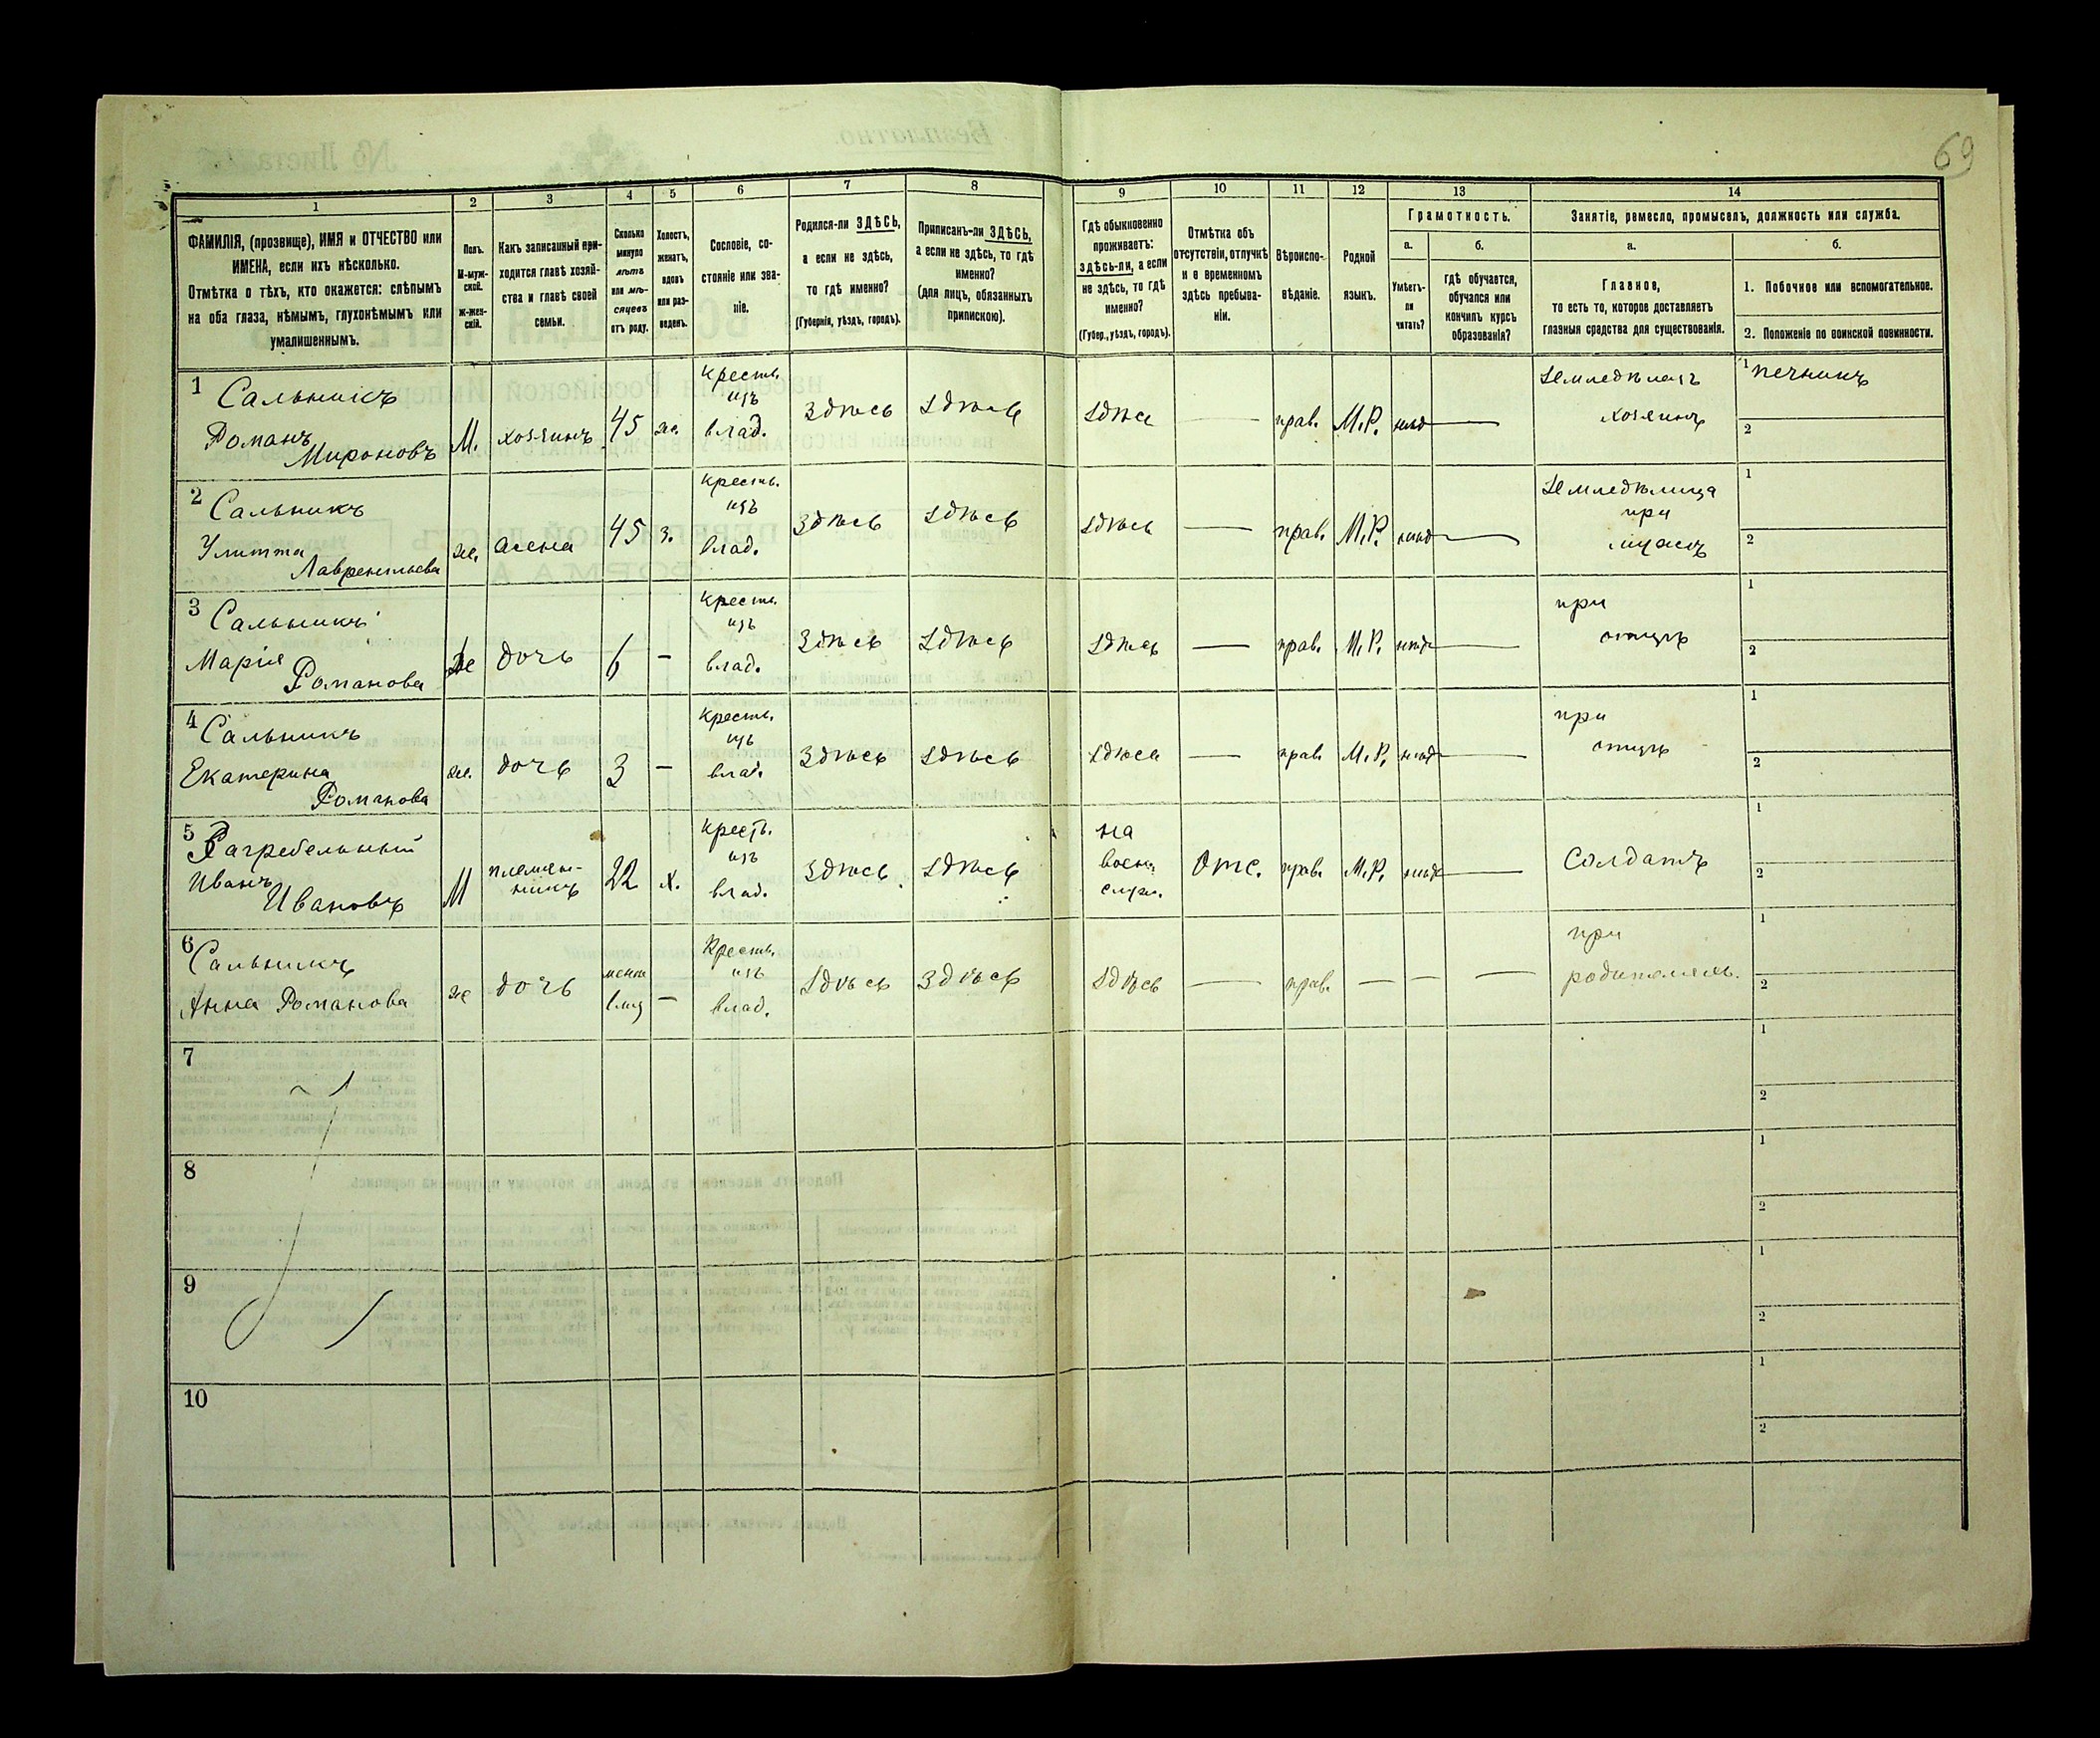 69
1 2 3 4 5 6 7 8 9 10 11 12 13 14
ФАМИЛІЯ, (прозвище), ИМЯ и ОТЧЕСТВО или
ИМЕНА, если ихъ нѣсколько.
Отмѣтка о тѣхъ, кто окажется: слѣпымъ
на оба глаза, нѣмымъ, глухонѣмымъ или
умалишеннымъ.
Полъ.
М-муж-
ской.
Ж-жен-
скій.
Какъ записанный при-
ходится главѣ хозяй-
ства и главѣ своей
семьи.
Сколько
минуло
лѣтъ
или мѣ-
сяцевъ
отъ роду.
Холостъ,
женатъ,
вдовъ
или раз-
веденъ.
Сословіе, со-
стояніе или зва-
ніе.
Родился-ли ЗДѢСЬ,
а если не здѣсь,
то гдѣ именно?
(Губернія, уѣздъ, городъ).
Приписанъ-ли ЗДѢСЬ,
а если не здѣсь, то гдѣ
именно?
(для лицъ, обязанныхъ
припискою).
Гдѣ обыкновенно
проживаетъ:
здѣсь-ли, а если
не здѣсь, то гдѣ
именно?
(Губер., уѣздъ, городъ).
Отмѣтка объ
отсутствіи, отлучкѣ
и о временномъ
здѣсь пребыва-
ніи.
Вѣроиспо-
вѣданіе.
Родной
языкъ.
Грамотность.
а.
Умѣетъ-
ли
читать?
б.
Гдѣ обучается,
обучался или
кончилъ курсъ
образованія?
Занятіе, ремесло, промыселъ, должность или служба.
а.
Главное,
то есть то, которое доставляетъ
главныя средства для существованія.
б.
1. Побочное или вспомогательное.
2. Положеніе по воинской повинности.
1 Сальникъ
Романъ
Мироновъ
М. хозяинъ 45 ж.
кресть.
изъ
влад.
Здѣсь Здѣсь Здѣсь — прав. М.Р. нѣтъ —
Земледѣлецъ
хозяинъ
1 печникъ
2
2 Сальникъ
Улитта
Лаврентьева
ж. жена 45 з.
кресть.
изъ
влад.
Здѣсь Здѣсь Здѣсь — прав. М.Р. нѣтъ —
Земледѣлица
при
мужѣ
1
2
3 Сальникъ
Марія
Романова
ж дочь 6 —
кресть.
изъ
влад.
Здѣсь Здѣсь Здѣсь — прав. М.Р. нѣтъ —
при
отцѣ
1
2
4 Сальникъ
Екатерина
Романова
ж. дочь 3 —
кресть.
изъ
влад.
Здѣсь Здѣсь Здѣсь — прав. М.Р. нѣтъ —
при
отцѣ
1
2
5 Загребельный
Иванъ
Ивановъ
М
племян-
никъ
22 х.
кресть.
изъ
влад.
Здѣсь Здѣсь
на
воен.
служ.
отс. прав. М.Р. нѣтъ —
Солдатъ
1
2
6 Сальникъ
Анна Романова
ж дочь
—
Кресть.
изъ
влад.
Здѣсь Здѣсь Здѣсь — прав. — — —
при
родителяхъ.
1
2
7
1
2
8
1
2
9
1
2
10
1
2